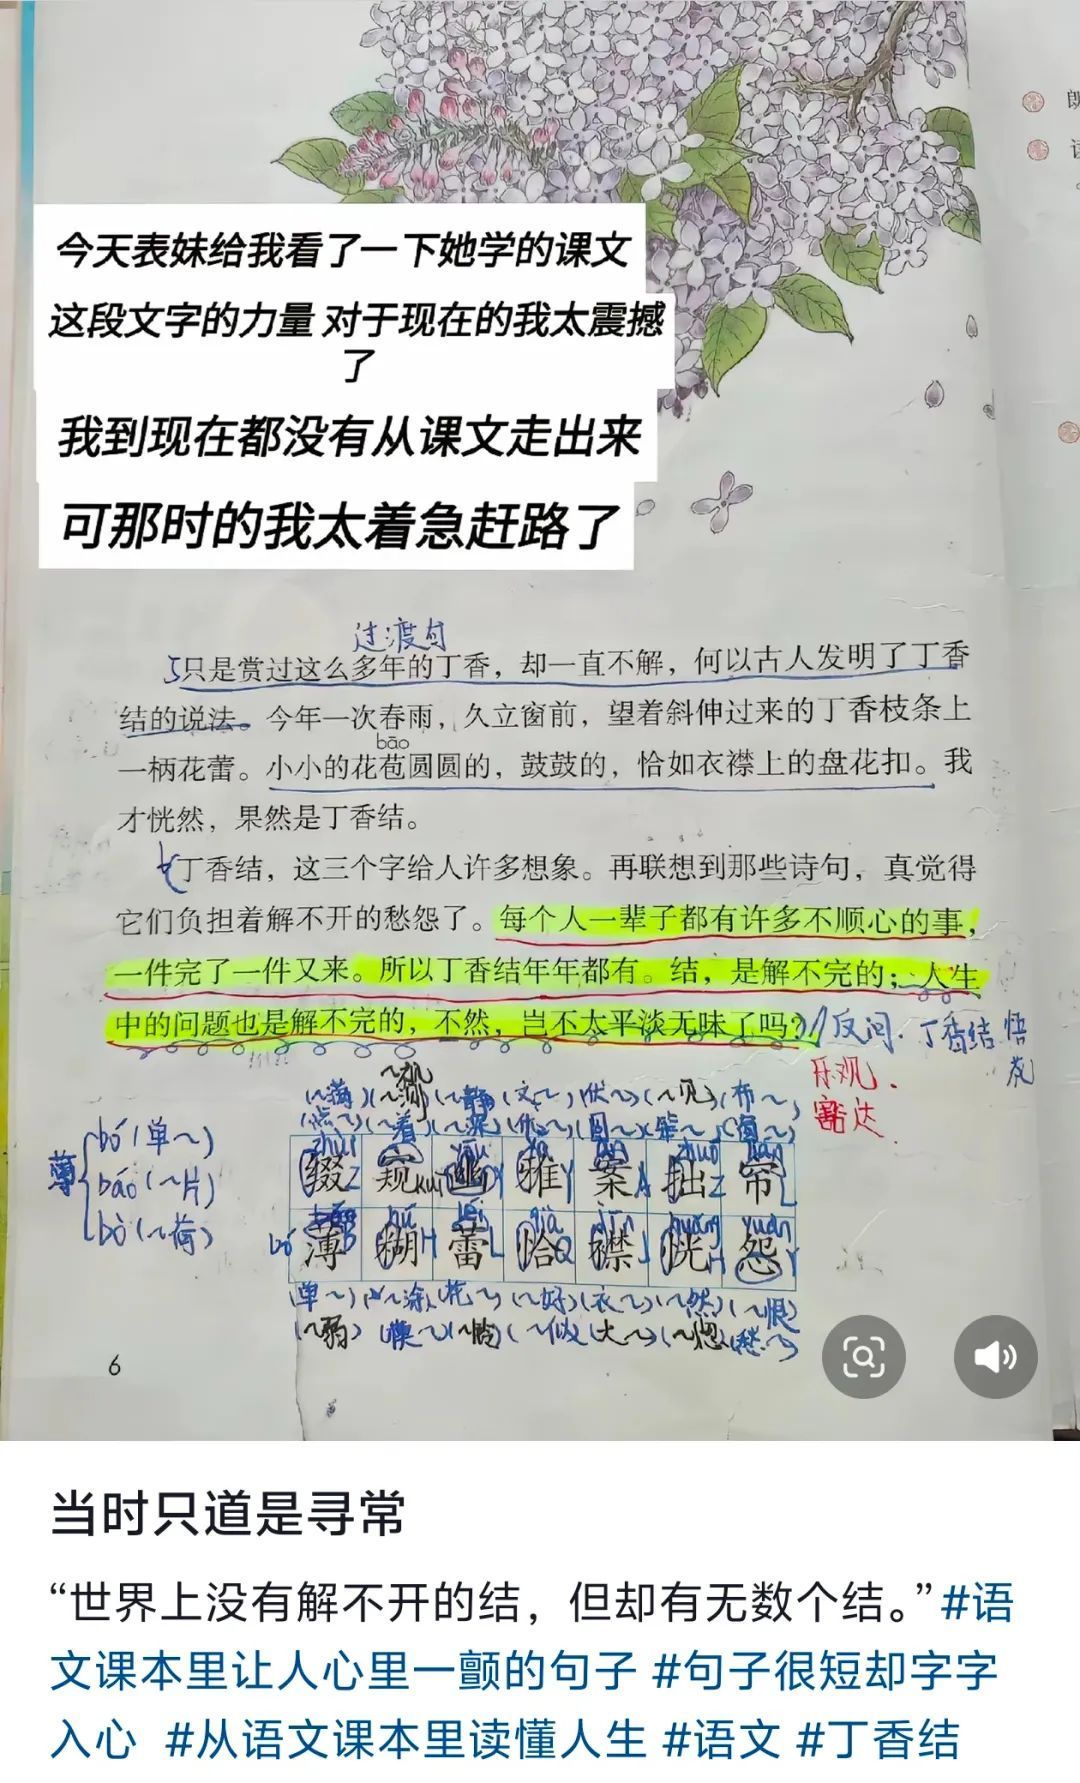 今天表妹给我看了一下她学的课文
这段文字的力量 对于现在的我太震撼
了
我到现在都没有从课文走出来
可那时的我太着急赶路了
过渡句
只是赏过这么多年的丁香，却一直不解，何以古人发明了丁香
结的说法。今年一次春雨，久立窗前，望着斜伸过来的丁香枝条上
bāo
一柄花蕾。小小的花苞圆圆的，鼓鼓的，恰如衣襟上的盘花扣。我
才恍然，果然是丁香结。
丁香结，这三个字给人许多想象。再联想到那些诗句，真觉得
它们负担着解不开的愁怨了。每个人一辈子都有许多不顺心的事，
一件完了一件又来。所以丁香结年年都有。结，是解不完的；人生
中的问题也是解不完的，不然，岂不太平淡无味了吗？
反问. 丁香结 悟
乐观.
豁达
薄
bó(单~)
báo(~片)
bò(~荷)
缀 窥 幽 雅 案 拙 帘
薄 糊 蕾 恰 襟 恍 怨
(单~) (~涂) (花~) (~好) (衣~) (~然) (~恨)
(~弱) (模~) (~似) (大~) (~惚) (愁~)
6
当时只道是寻常
“世界上没有解不开的结，但却有无数个结。”#语
文课本里让人心里一颤的句子 #句子很短却字字
入心 #从语文课本里读懂人生 #语文 #丁香结